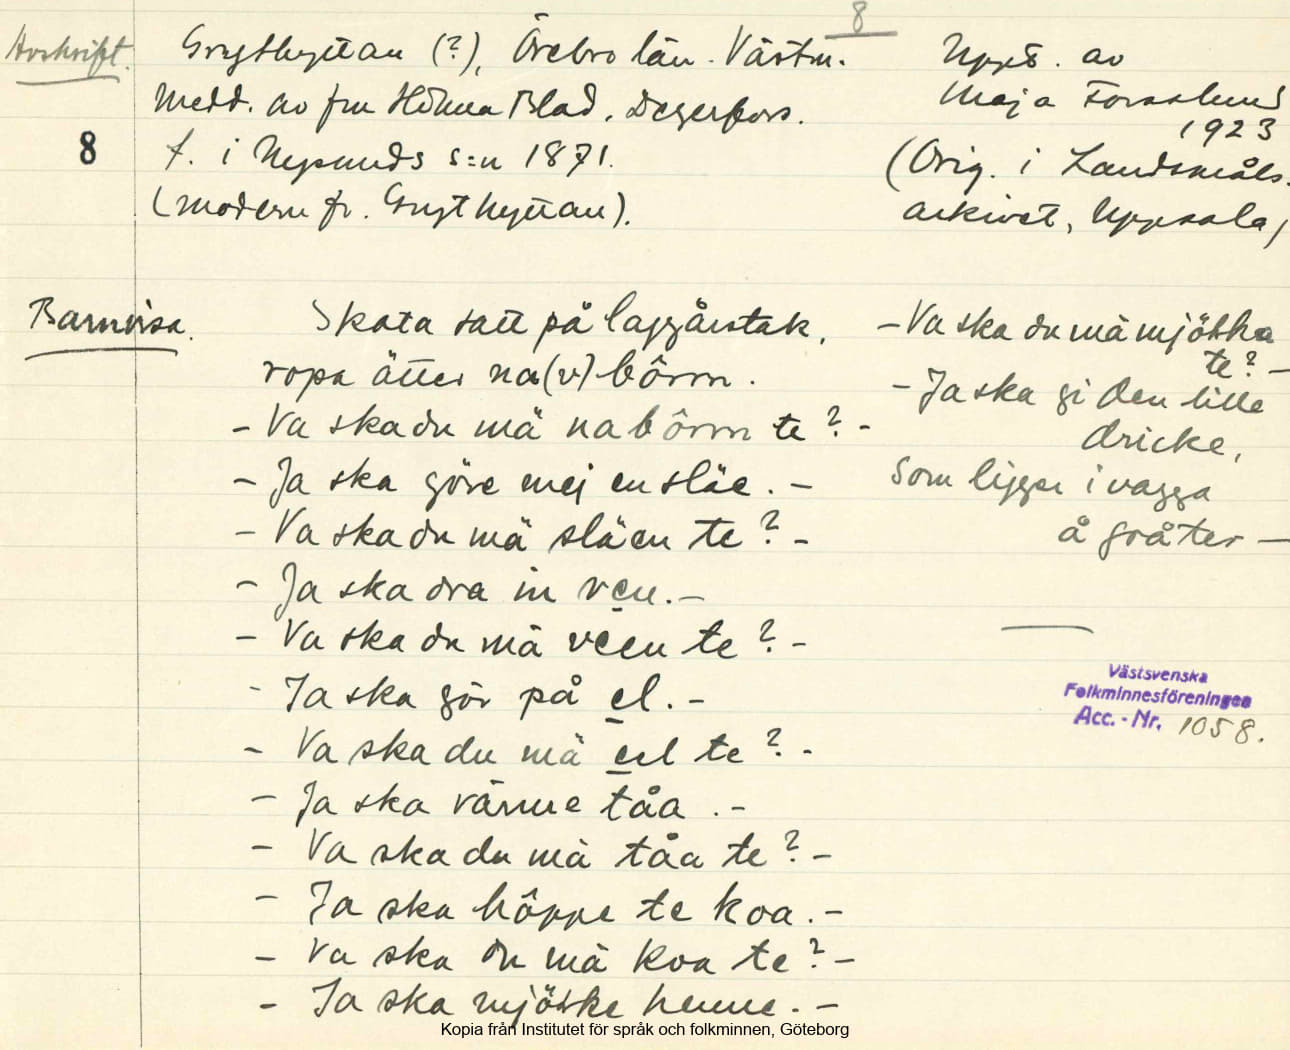 8
Avskrift.
Grythyttan (?), Örebro län. Västm.
Medd. av fru Blad, Degerfors.
8
f. i Nysunds s:n 1871.
(modern fr. Grythyttan).
Uppt. av
Maja Forsslund
1923
(Orig. i Landsmåls-
arkivet, Uppsala)
Barnvisa.
Skata satt på laggårstak,
ropa ätter na(v)bôrrn.
- Va ska du mä nabôrrn te? -
- Ja ska göre mej en släe. -
- Va ska du mä släen te? -
- Ja ska dra in ven. -
- Va ska du mä veen te? -
- Ja ska gör på el. -
- Va ska du mä eel te? -
- Ja ska värme tåa. -
- Va ska du mä tåa te? -
- Ja ska hôppe te koa. -
- Va ska du mä koa te? -
- Ja ska mjölke henne. -
- Va ska du mä mjölka
te? -
- Ja ska gi den lille
dricke,
Som ligger i vagga
å gråter -
Västsvenska
Folkminnesföreningen
Acc.-Nr. 1058.
Kopia från Institutet för språk och folkminnen, Göteborg